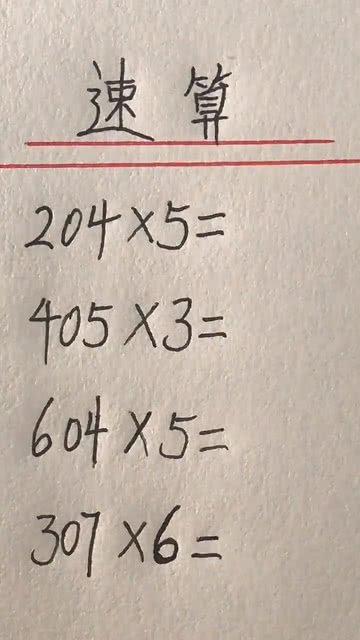 速算
204×5=
405×3=
604×5=
307×6=